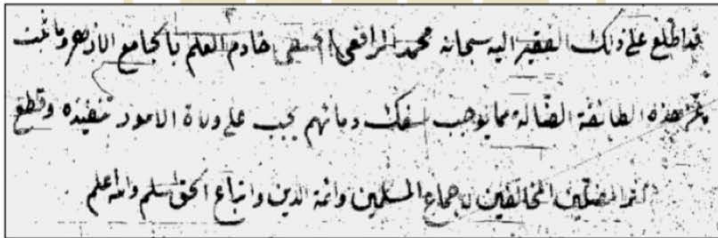 قد اطلع على ذلك الفقير اليه سبحانه محمد الرافعي الحنفي خادم العلم بالجامع الازهر وما ثبت
هذه الطائفة الضالة مما يوجب سفك دمائهم يجب على ولاة الامور تنفيذه وقطع
المضلين المخالفين لاجماع المسلمين وائمة الدين واتباع الحق اسلم والله اعلم